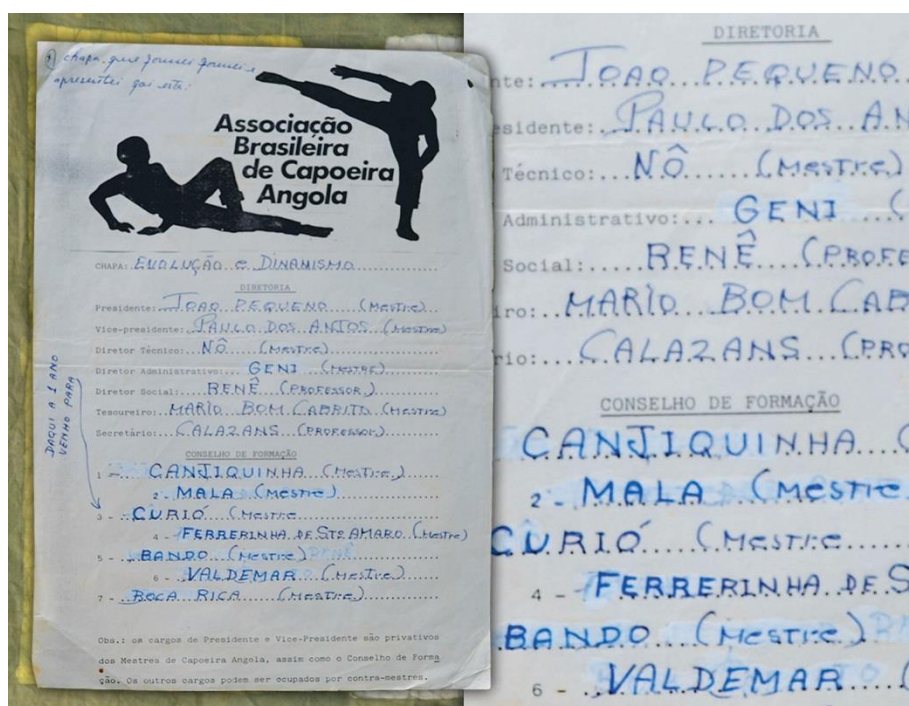 chapa que formei formei e
apresentei foi esta:
Associação
Brasileira
de Capoeira
Angola
CHAPA: EVOLUÇÃO e DINAMISMO
DIRETORIA
Presidente: JOAO PEQUENO (MESTRE)
Vice-presidente: PAULO DOS ANTOS (MESTRE)
Diretor Técnico: NÔ (MESTRE)
Diretor Administrativo: GENI (MESTRE)
Diretor Social: RENÊ (PROFESSOR)
Tesoureiro: MARIO BOM CABRITO (MESTRE)
Secretário: CALAZANS (PROFESSOR)
DAQUI A 1 ANO
VENHO PARA
CONSELHO DE FORMAÇÃO
1 - CANJIQUINHA (MESTRE)
2 - MALA (MESTRE)
3 - CURIÓ (MESTRE
4 - FERRERINHA DE STº AMARO (MESTRE)
5 - BANDO (MESTRE) RENÊ
6 - VALDEMAR (MESTRE)
7 - BOCA RICA (MESTRE)
Obs.: os cargos de Presidente e Vice-Presidente são privativos
dos Mestres de Capoeira Angola, assim como o Conselho de Forma
ção. Os outros cargos podem ser ocupados por contra-mestres.
DIRETORIA
nte: JOAO PEQUENO
esidente: PAULO DOS AN
Técnico: NÔ (MESTRE)
Administrativo: GENI (
Social: RENÊ (PROFE
iro: MARIO BOM CAB
rio: CALAZANS (PRO
CONSELHO DE FORMAÇÃO
CANJIQUINHA (
2 - MALA (MESTRE
CURIÓ (MESTRE
4 - FERRERINHA DE S
BANDO (MESTRE) R
6 - VALDEMAR (